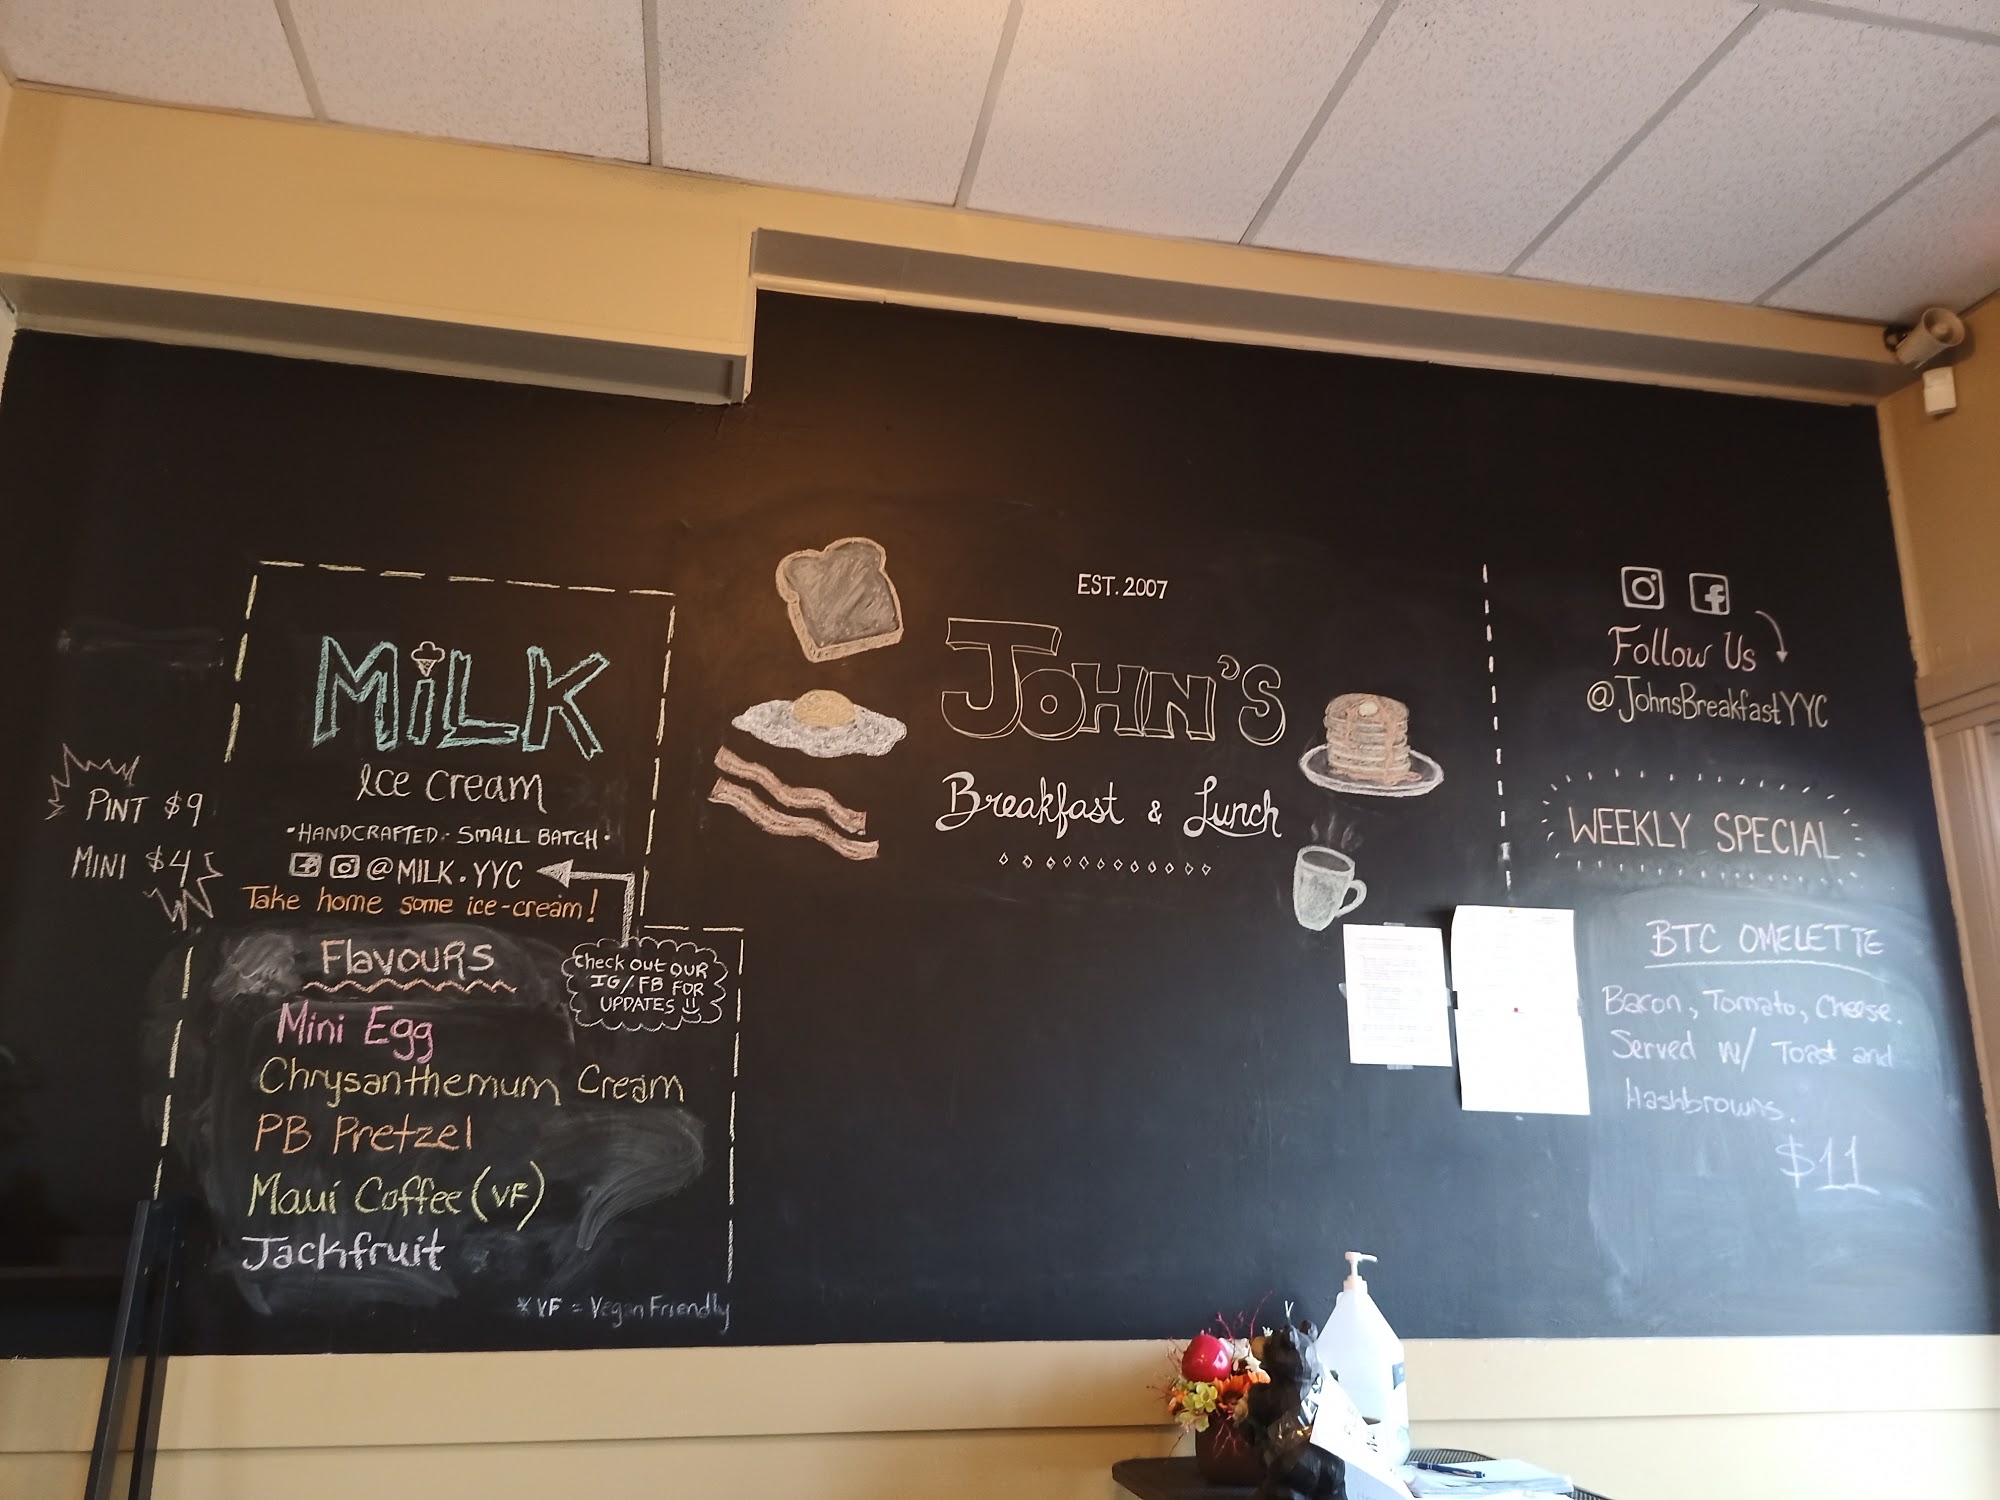 PINT $9
MINI $4
MiLK
Ice Cream
•HANDCRAFTED• SMALL BATCH•
@MILK.YYC
Take home some ice-cream!
Flavours
Check out our
IG/FB FOR
UPDATES
Mini Egg
Chrysanthemum Cream
PB Pretzel
Maui Coffee (VF)
Jackfruit
* VF = Vegan Friendly
EST. 2007
JOHN'S
Breakfast & Lunch
Follow Us
@JohnsBreakfastYYC
WEEKLY SPECIAL
BTC OMELETTE
Bacon, Tomato, Cheese.
Served w/ Toast and
Hashbrowns.
$11